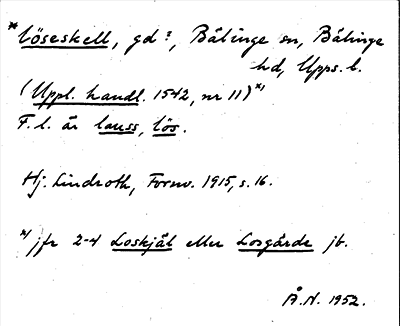 *Löseskell, gd?, Bälinge sn, Bälinge
hd, Upps. l.
(Uppl. handl. 1542, nr 11)*)
F. l. är lauss, lös.
Hj. Lindroth, Fornv. 1915, s. 16.
*) jfr 2-4 Loskjäl eller Losgärde jb.
Å.N. 1952.